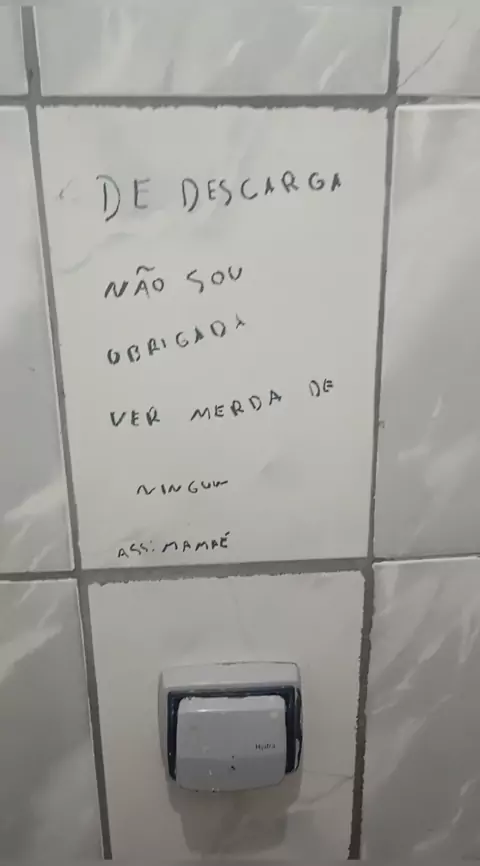 DE DESCARGA
NÃO SOU
OBRIGADA
VER MERDA DE
NINGUM
ASS: MAMAÉ
Hydra